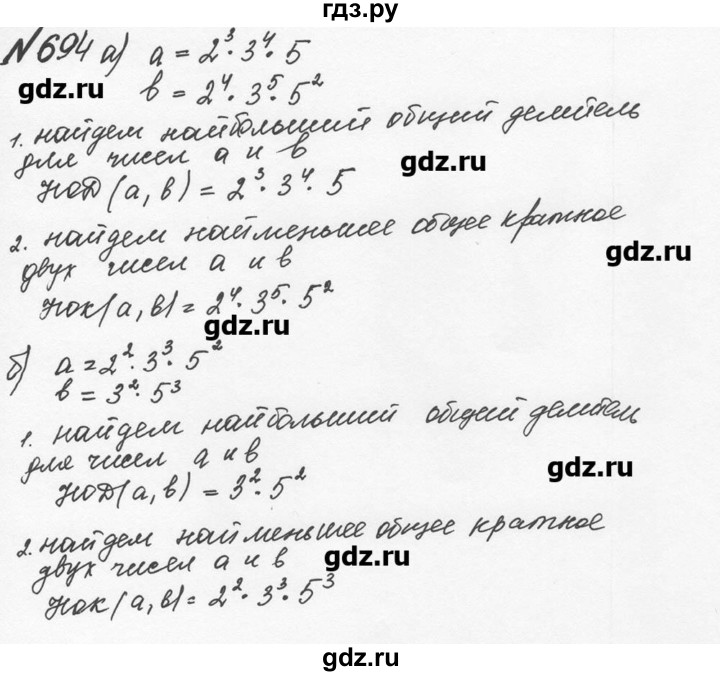 гдз.ру
№694 а) a = 2³·3⁴·5
gdz.ru b = 2⁴·3⁵·5²
1. найдем наибольший общий делитель
для чисел a и b gdz.ru
НОД(a, b) = 2³·3⁴·5
2. найдем найменьшее общее кратное
двух чисел a и b gdz.ru
НОК(a, b) = 2⁴·3⁵·5²
gdz.ru
б) a = 2²·3³·5²
b = 3²·5³
1. найдем наибольший общий делитель
для чисел a и b gdz.ru
НОД(a, b) = 3²·5²
2. найдем найменьшее общее кратное
двух чисел a и b gdz.ru
НОК(a, b) = 2²·3³·5³
gdz.ru